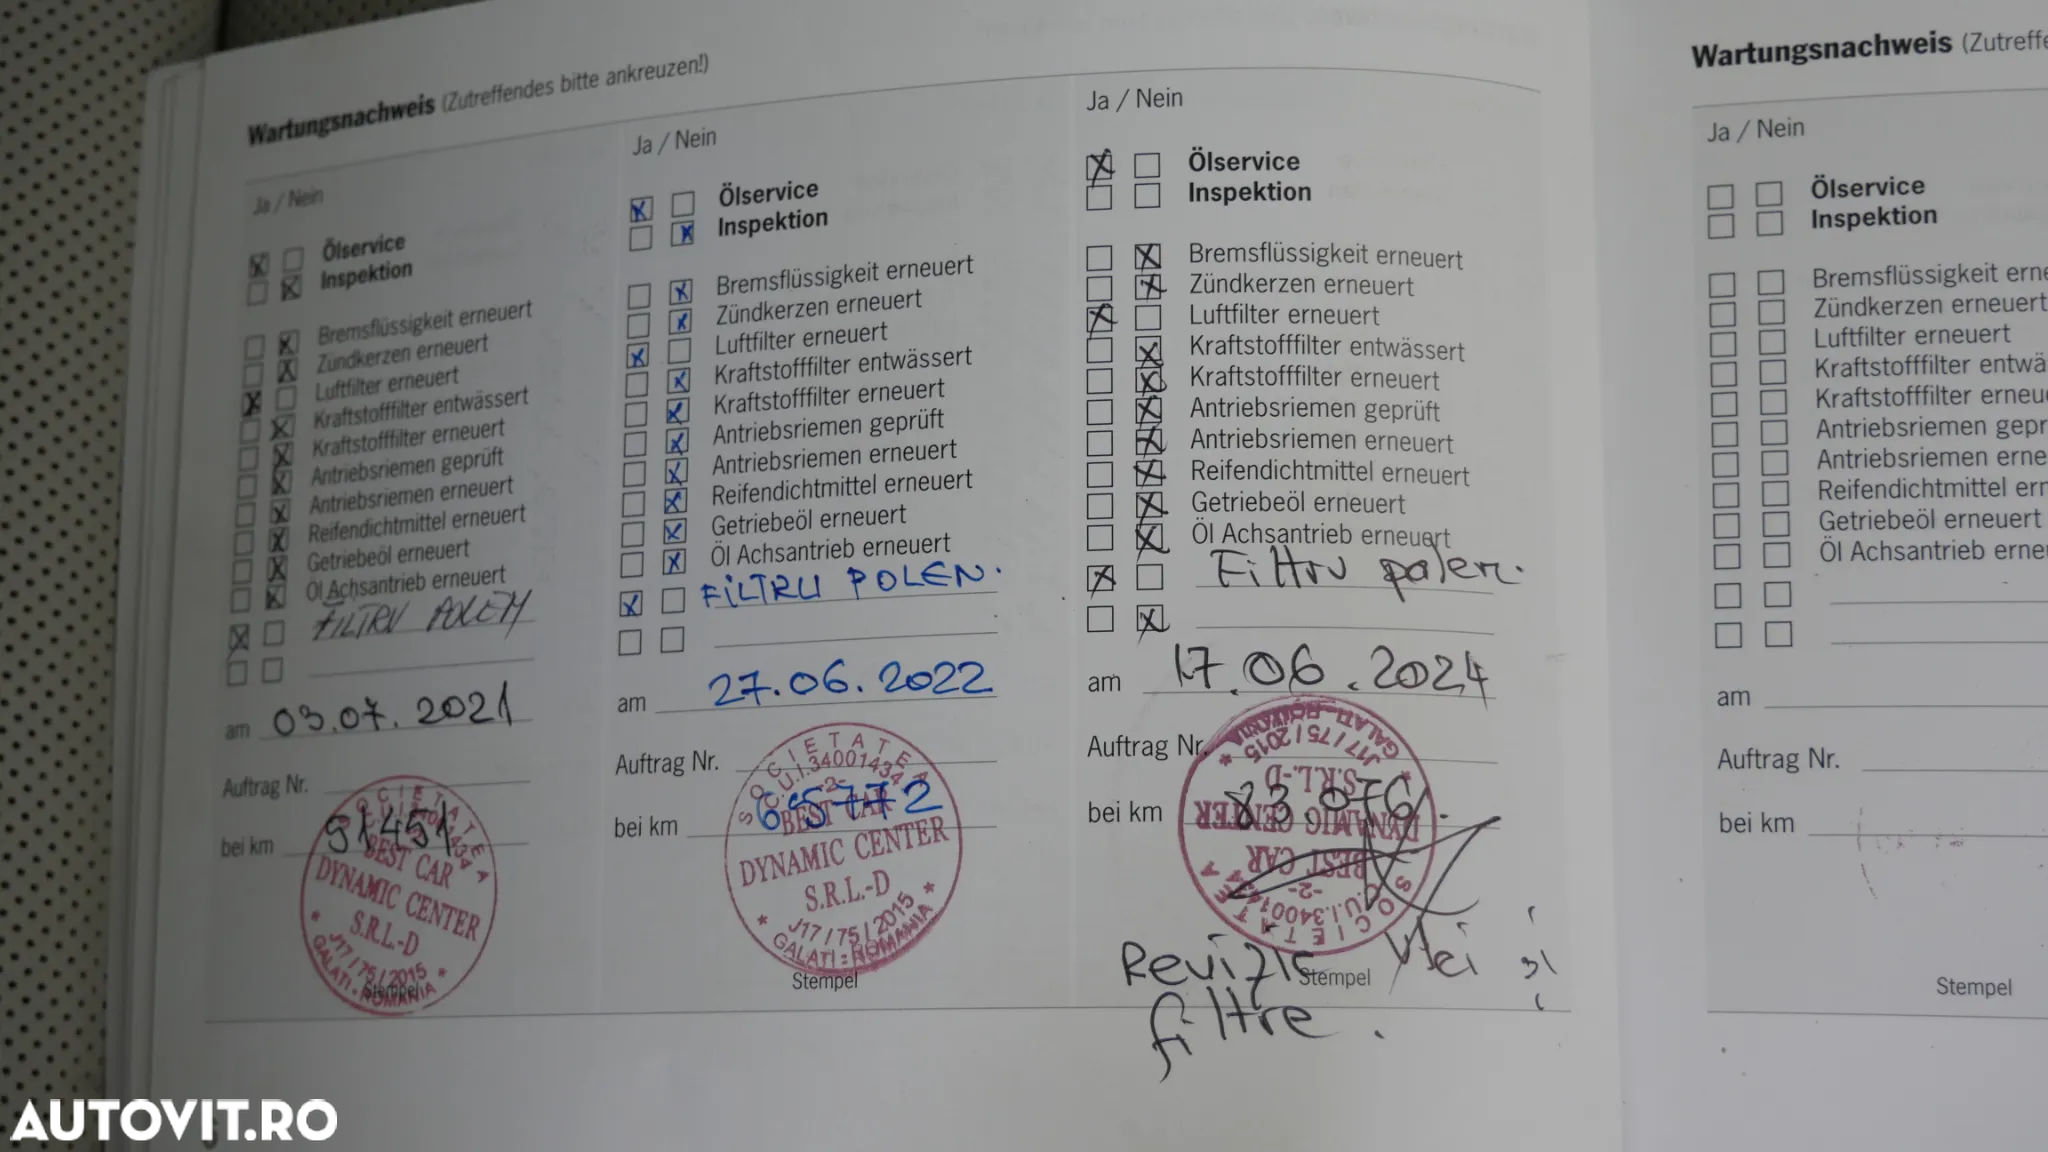 Wartungsnachweis (Zutreffendes bitte ankreuzen!)
Ja / Nein
Ölservice
Inspektion
Bremsflüssigkeit erneuert
Zündkerzen erneuert
Luftfilter erneuert
Kraftstofffilter entwässert
Kraftstofffilter erneuert
Antriebsriemen geprüft
Antriebsriemen erneuert
Reifendichtmittel erneuert
Getriebeöl erneuert
Öl Achsantrieb erneuert
FILTRU POLEN
am 03.07.2021
Auftrag Nr.
bei km 51451
SOCIETATEA
BEST CAR
DYNAMIC CENTER
S.R.L-D
J17/75/2015
GALATI - ROMANIA
Stempel
Ja / Nein
Ölservice
Inspektion
Bremsflüssigkeit erneuert
Zündkerzen erneuert
Luftfilter erneuert
Kraftstofffilter entwässert
Kraftstofffilter erneuert
Antriebsriemen geprüft
Antriebsriemen erneuert
Reifendichtmittel erneuert
Getriebeöl erneuert
Öl Achsantrieb erneuert
FILTRU POLEN.
am 27.06.2022
Auftrag Nr.
bei km 65772
SOCIETATEA
C.U.I.34001434
-2-
BEST CAR
DYNAMIC CENTER
S.R.L-D
J17/75/2015
GALATI - ROMANIA
Stempel
Ja / Nein
Ölservice
Inspektion
Bremsflüssigkeit erneuert
Zündkerzen erneuert
Luftfilter erneuert
Kraftstofffilter entwässert
Kraftstofffilter erneuert
Antriebsriemen geprüft
Antriebsriemen erneuert
Reifendichtmittel erneuert
Getriebeöl erneuert
Öl Achsantrieb erneuert
Filtru polen.
am 17.06.2024
Auftrag Nr.
bei km 83.076.
SOCIETATEA
C.U.I.34001434
-2-
BEST CAR
DYNAMIC CENTER
S.R.L-D
J17/75/2015
GALATI - ROMANIA
Stempel
Revizie si
filtre.
Wartungsnachweis (Zutreffe
Ja / Nein
Ölservice
Inspektion
Bremsflüssigkeit erne
Zündkerzen erneuert
Luftfilter erneuert
Kraftstofffilter entwä
Kraftstofffilter erneu
Antriebsriemen gepr
Antriebsriemen erne
Reifendichtmittel ern
Getriebeöl erneuert
Öl Achsantrieb erneu
am
Auftrag Nr.
bei km
Stempel
AUTOVIT.RO